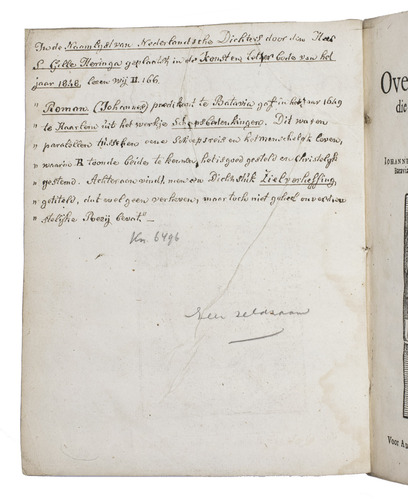 In de Naamlijst van Nederlandsche Dichters door den Heer
S. Gille Heringa geplaatst in de Konst en Letterbode van het
jaar 1838, lezen wij II. 166.
" Roman (Johannes) predikant te Batavia gaf in het jaar 1649
" te Haarlem uit het werkje Scheepsbedenkingen. Dit waren
" paralellen tusschen eene Scheepsreis en het menschelijk leven,
" waarin R. toonde beider te kennen, het is goed gesteld en Christelijk
" gestemd. Achteraan vindt men een Dichtstuk Zielverheffing,
" getiteld, dat wel geen verheven, maar toch niet geheel onverdien
" stelijke Poezij bevat". —
Kn 6496
Zeer zeldzaam
Ove
die
IOHANN
Batavia
Voor A